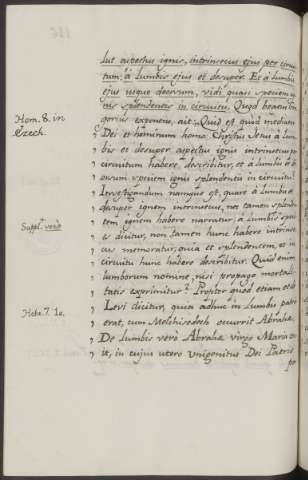 lut aspectus ignis, intrinsecus ejus per circui-
tum; à lumbis ejus et desuper. Et à lumbis
ejus usque deorsum, vidi quasi speciem ig-
nis splendentis in circuitu. Quod beatus Gre-
gorius exponens, ait: Quid est quod mediator
Hom. 8. in
Ezech.
Dei et hominum homo Christus Jesus à lum-
bis et desuper aspectus ignis intrinsecus per
circuitum habere describitur, et à lumbis de-
orsum speciem ignis splendentis in circuitu?
Investigandum namque est, quare à lumbis et
desuper ignem intrinsecus, nec tamen splenden-
tem ignem habere narratur; à lumbis
dicitur, non tamen hunc habere intrinse-
cus memoratur, quia et splendentem, et in
circuitu hunc habere describitur. Quid enim
lumborum nomine, nisi propago mortali-
tatis exprimitur? Propter quod etiam et de
Hebr. 7. 10.
Levi dicitur, quia adhuc in lumbis patris
erat, cum Melchisedech occurrit Abrahæ.
De lumbis vero Abrahæ virgo Maria ex-
it, in cujus utero Unigenitus Dei Patris